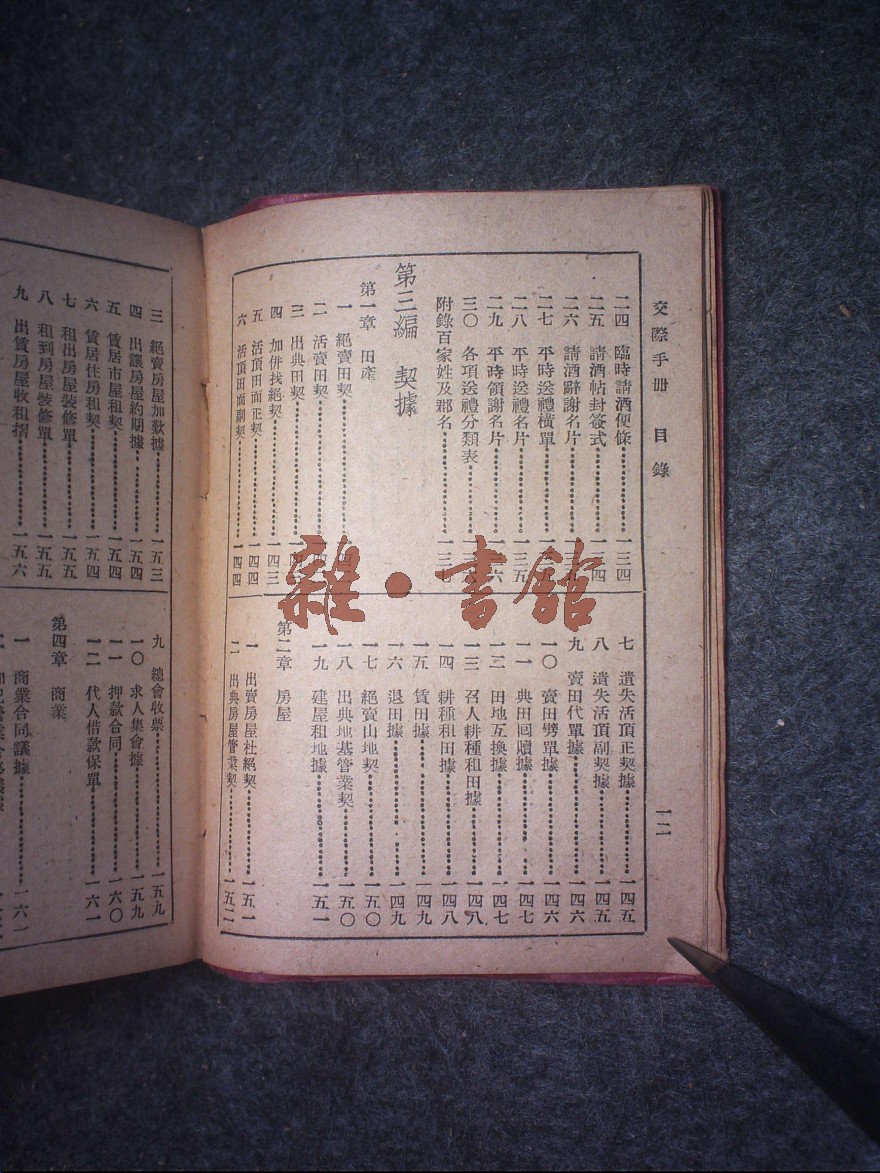 交際手册 目錄
一二
二四 臨時請酒便條 一三四
二五 請酒帖封簽式 一三四
二六 請酒辭謝名片
二七 平時送禮橫單
二八 平時送禮名片 一三五
二九 平時領謝名片
三〇 各項送禮分類表
附錄百家姓及郡名
第三編 契據
第一章 田產
一 絕賣田契
二 活賣田契
三 出典田契
四 加併找絕契 一四三
五 活頂田面正契 一四四
六 活頂田面副契 一四四
七 遺失活頂正契據 一四五
八 遺失活頂副契據 一四五
九 賣田代單據 一四六
一〇 賣田劈單據 一四六
一一 典田囘贖據 一四七
一二 田地互換據 一四七
一三 召人耕種租田據 一四八
一四 耕種租田據 一四八
一五 賃田據 一四九
一六 退田據 一四九
一七 絕賣山地契 一五〇
一八 出典地基管業契 一五〇
一九 建屋租地據 一五一
第二章 房屋
一 出賣房屋杜絕契 一五一
二 出典房屋管業契 一五二
三 絕賣房屋加歎據 一五三
四 出讓房屋約期據 一五四
五 賃居市屋租契 一五四
六 賃居住房租契 一五四
七 租出房屋裝修單 一五五
八 租到房屋裝修單 一五五
九 出賃房屋收租摺 一五六
九 總會收票 一五九
一〇 求人集會據 一五九
一一 押款合同 一六〇
一二 代人借款保單 一六一
第四章 商業
一 商業合同議據 一六一
雜·書館